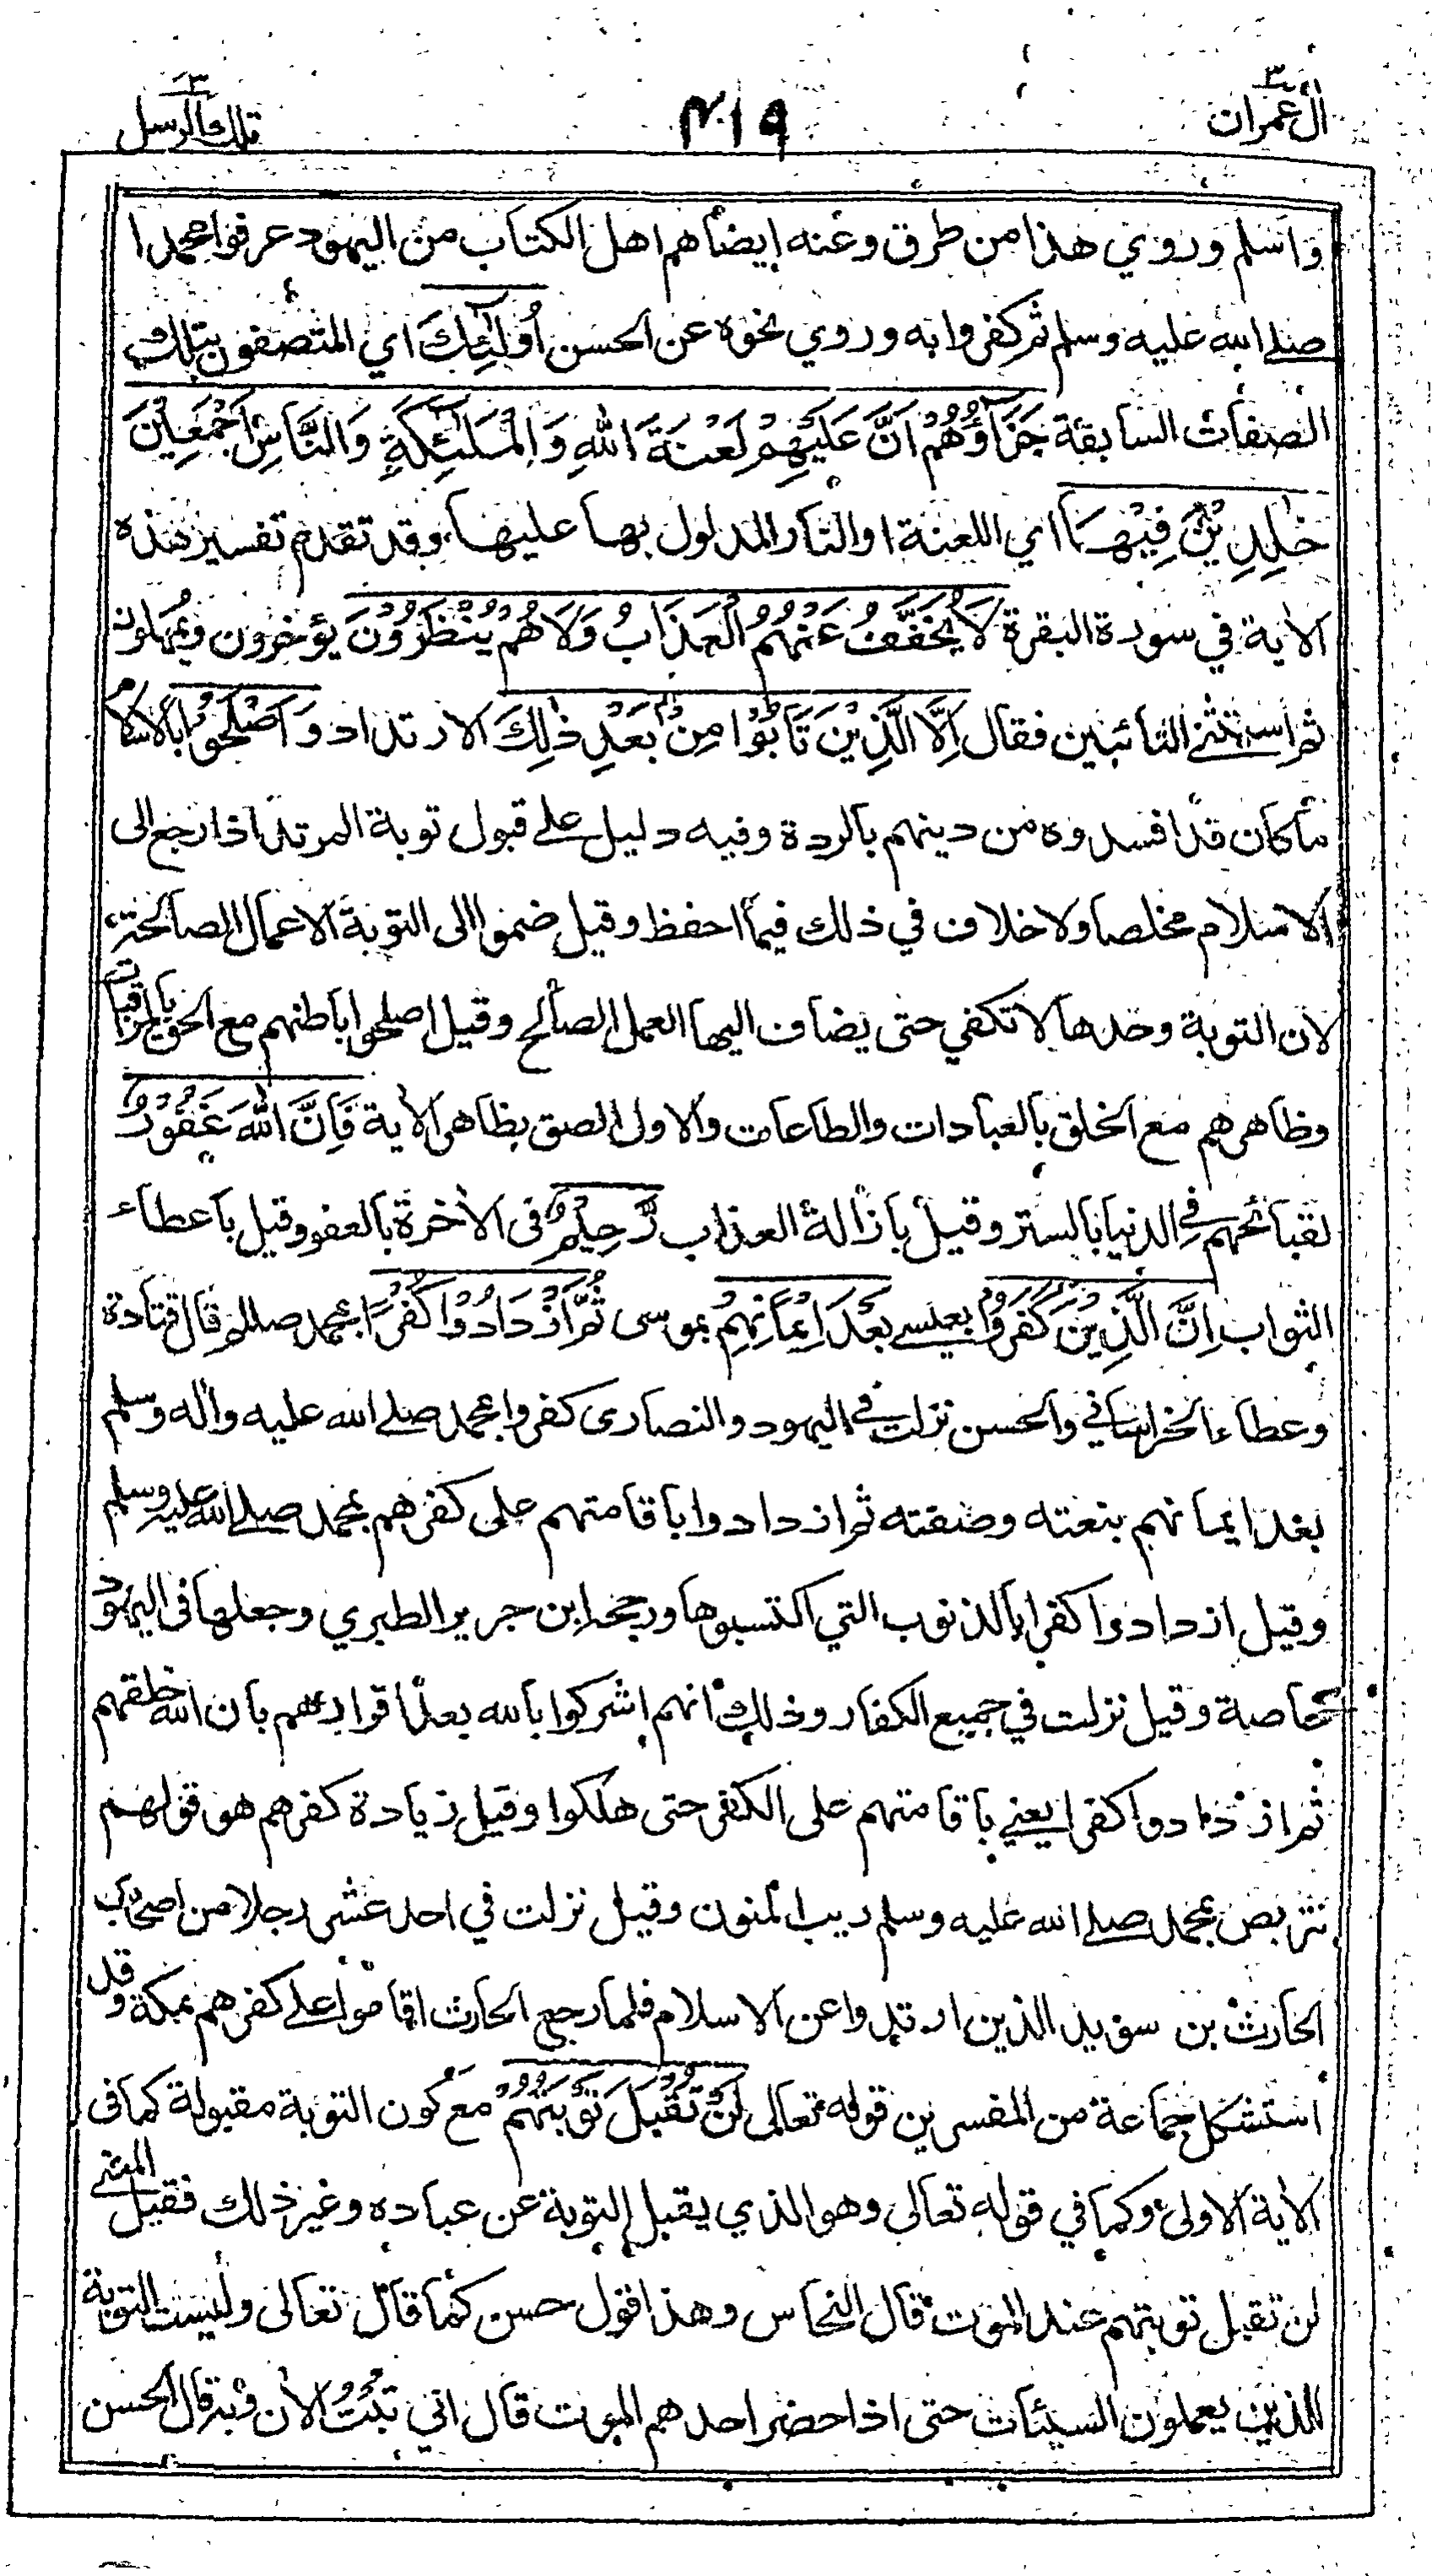 اٰل عمران ٣
٤١٩
تلك الرسل ٣
واسلم وروي هذا من طرق وعنه ايضا هم اهل الكتاب من اليهود عرفوا محمدا
صلى الله عليه وسلم ثم كفروا به وروي نحوه عن الحسن اُولٰٓئِكَ اي المتصفون بتلك
الصفات السابقة جَزَآؤُهُمْ اَنَّ عَلَيْهِمْ لَعْنَةَ اللهِ وَالْمَلٰٓئِكَةِ وَالنَّاسِ اَجْمَعِيْنَ
خٰلِدِيْنَ فِيْهَا اي اللعنة او النار المدلول بها عليها، وقد تقدم تفسير هذه
الاية في سورة البقرة لَا يُخَفَّفُ عَنْهُمُ الْعَذَابُ وَلَا هُمْ يُنْظَرُوْنَ يؤخرون ويمهلون
ثم استثنى التائبين فقال اِلَّا الَّذِيْنَ تَابُوْا مِنْۢ بَعْدِ ذٰلِكَ الارتداد وَاَصْلَحُوْا بالاسلام
ما كان قد افسدوه من دينهم بالردة وفيه دليل على قبول توبة المرتد اذا رجع الى
الاسلام مخلصا ولا خلاف في ذلك فيما احفظ وقيل ضموا الى التوبة الاعمال الصالحة،
لان التوبة وحدها لا تكفي حتى يضاف اليها العمل الصالح وقيل اصلحوا باطنهم مع الحق بالمراقبات
وظاهرهم مع الخلق بالعبادات والطاعات والاول الصق بظاهر الاية فَاِنَّ اللهَ غَفُوْرٌ
لقبائحهم في الدنيا بالستر وقيل بازالة العذاب رَّحِيْمٌ في الاٰخرة بالعفو وقيل باعطاء
الثواب اِنَّ الَّذِيْنَ كَفَرُوْا بعيسى بَعْدَ اِيْمَانِهِمْ بموسى ثُمَّ ازْدَادُوْا كُفْرًا بمحمد صللم قال قتادة
وعطاء الخراساني والحسن نزلت في اليهود والنصارى كفروا بمحمد صلى الله عليه واٰله وسلم
بعد ايمانهم بنعته وصفته ثم ازدادوا باقامتهم على كفرهم بمحمد صلى الله عليه وسلم
وقيل ازدادوا كفرا بالذنوب التي اكتسبوها ورجحه ابن جرير الطبري وجعلها في اليهود
خاصة وقيل نزلت في جميع الكفار وذلك انهم اشركوا بالله بعد اقرارهم بان الله خلقهم
ثم ازدادوا كفرا يعني باقامتهم على الكفر حتى هلكوا وقيل زيادة كفرهم هو قولهم
نتربص بمحمد صلى الله عليه وسلم ريب المنون وقيل نزلت في احد عشر رجلا من اصحاب
الحارث بن سويد الذين ارتدوا عن الاسلام فلما رجع الحارث اقاموا على كفرهم بمكة وقد
استشكل جماعة من المفسرين قوله تعالى لَنْ تُقْبَلَ تَوْبَتُهُمْ مع كون التوبة مقبولة كما في
الاية الاولى وكما في قوله تعالى وهو الذي يقبل التوبة عن عباده وغير ذلك فقيل المعنى
لن تقبل توبتهم عند الموت قال النحاس وهذا قول حسن كما قال تعالى وليست التوبة
للذين يعملون السيئات حتى اذا حضر احدهم الموت قال اني تُبْتُ الاٰن وبه قال الحسن